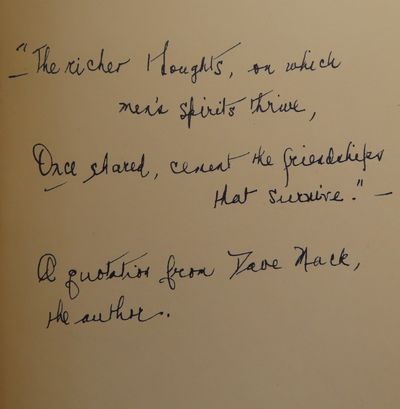 "The richer thoughts, on which
men's spirits thrive,
Once shared, cement the friendships
that survive." —
A quotation from Dave Mack,
the author.